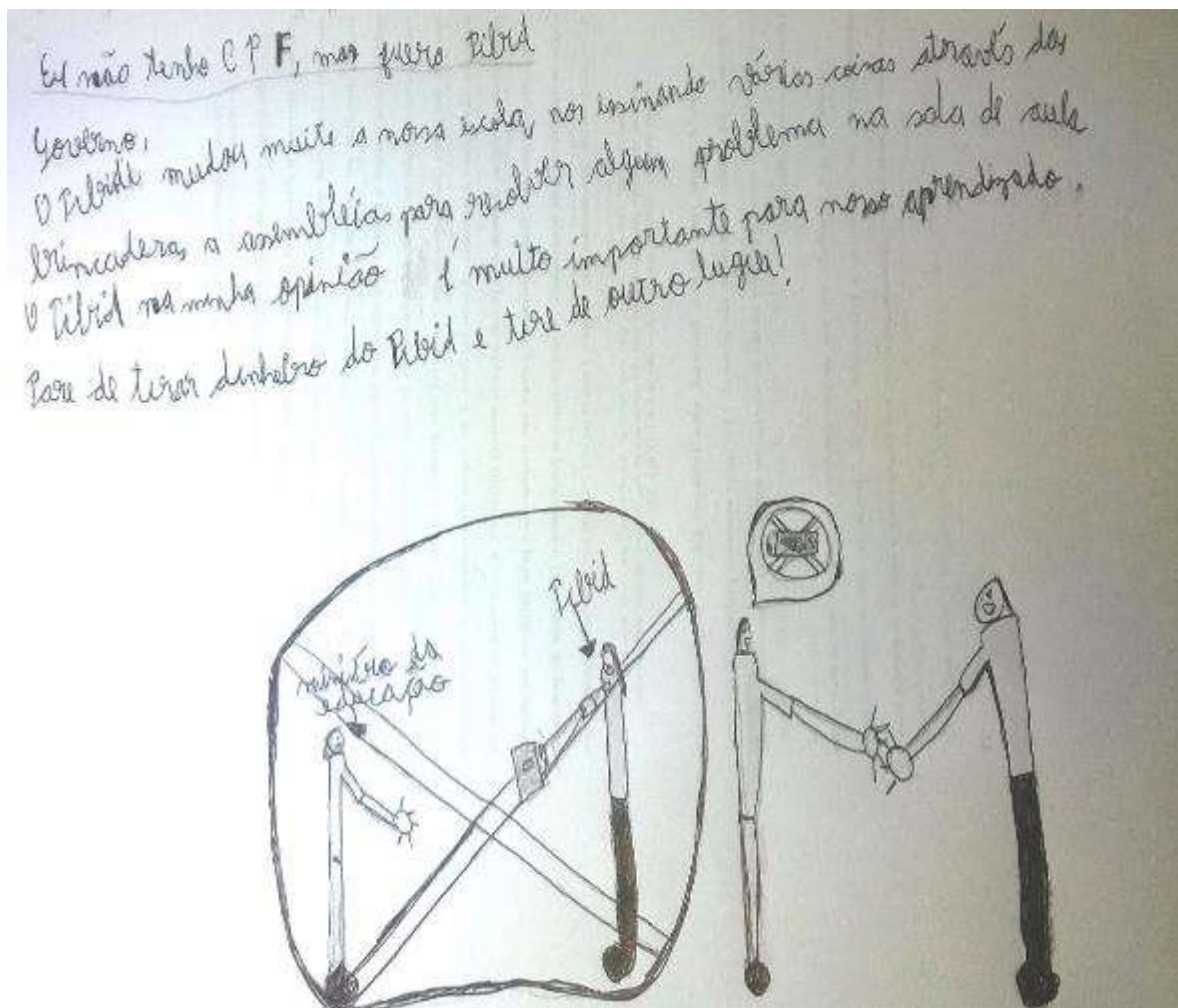 Eu não tenho CPF, mas quero Pibid
Governo,
O Pibidi mudou muito a nossa escola, nos ensinando várias coisas através das
brincaderas, a assembleias para resolver algum problema na sala de aula
O Pibid na minha opinião é muito importante para nosso aprendizado.
Pare de tirar dinheiro do Pibid e tire de outro lugar!
Pibid
minitro da
educação